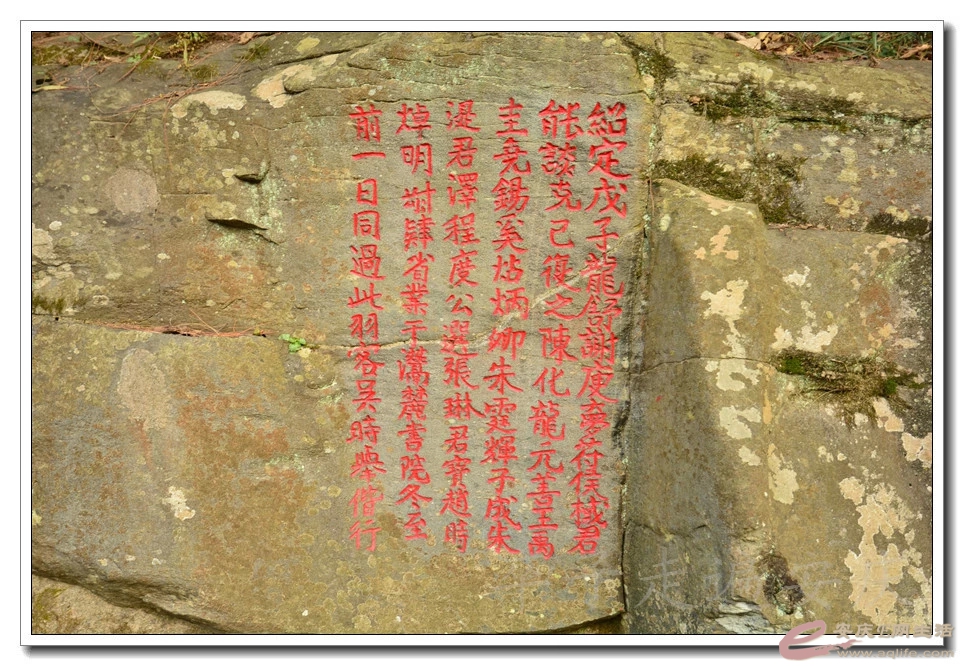 紹定戊子龍舒謝庚夢符侯棫君
能談克己復之陳化龍元善王禹
圭堯錫奚炳卿朱霆輝子成朱
湜君澤程度公選張琳君寶趙時
焯明肄省業于灊麓書院冬至
前一日同過此羽客吳時舉偕行
www.aqlife.com